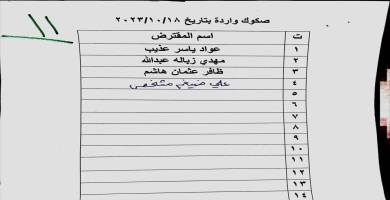 صكوك واردة بتاريخ ٢٠٢٣/١٠/١٨
١١
ت اسم المقترض
١ عواد ياسر عذيب
٢ مهدي زباله عبدالله
٣ ظافر عثمان هاشم
٤ علي
٥
٦
٧
٨
٩
١٠
١١
١٢
١٣
١٤